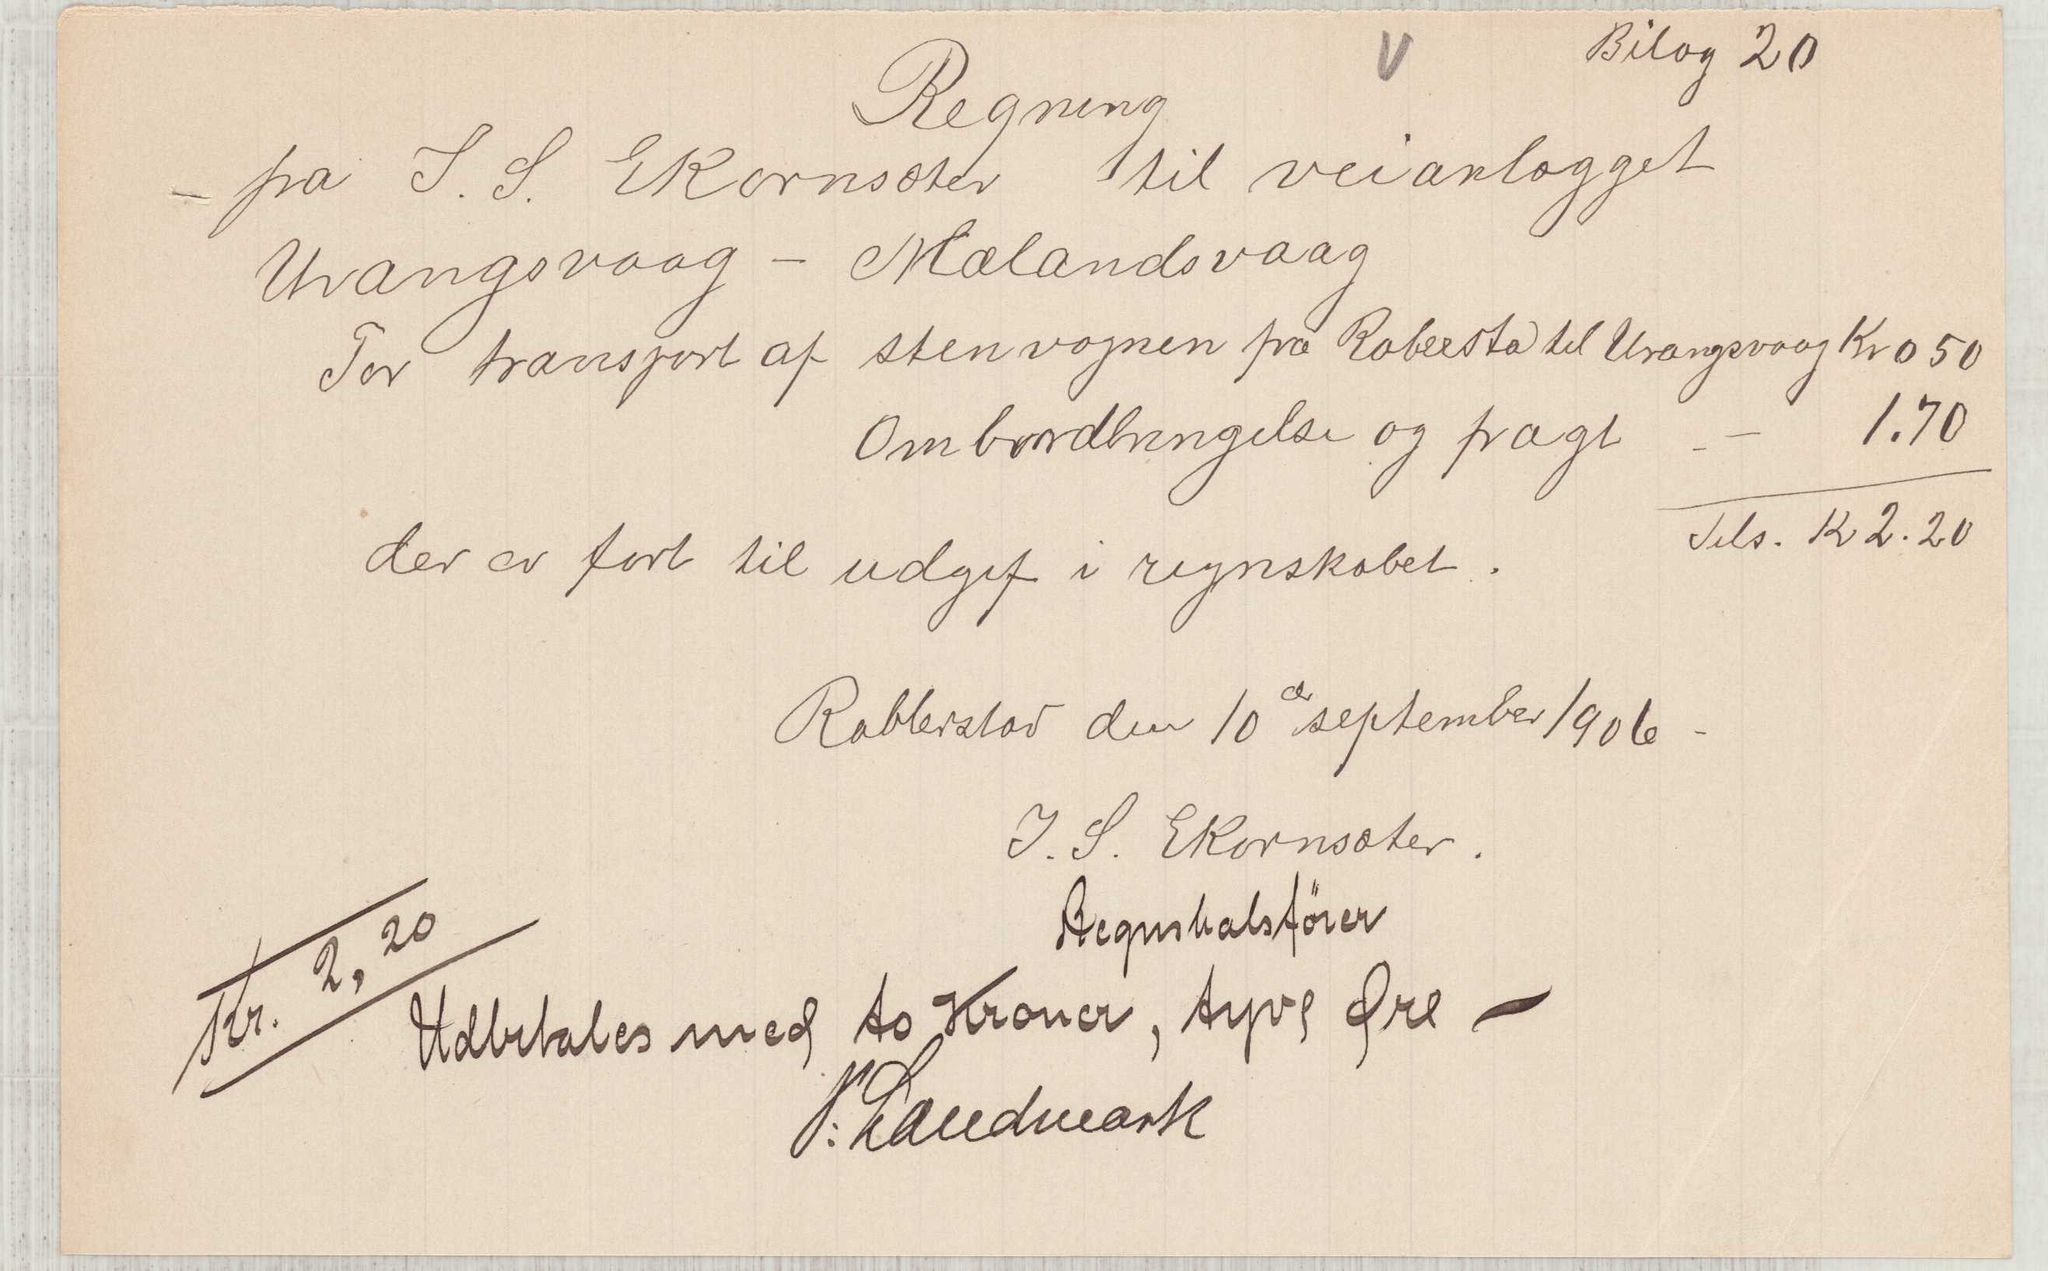 V
Bilag 20
Regning
– fra J. S. Ekornsæter til veianlægget
Urangsvaag – Mælandsvaag
For transport af stenvognen fra Robersta til Urangsvaag Kr 0 50
Ombordbringelse og fragt – – 1.70
Tils. Kr 2.20
der er ført til udgif i regnskabet.
Robberstad den 10de september 1906 –
J. S. Ekornsæter.
Regnskabsfører
Kr. 2,20
Udbetales med to Kroner, tyve Øre –
N: Landmark